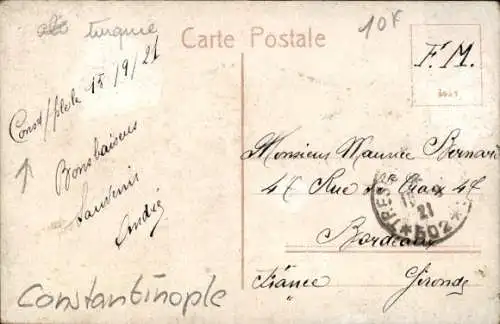 turquie
10F
Carte Postale
F. M.
Const/ple le 15/9/21
Bons baisers
Souvenir
André
Monsieur Maurice Bernard
47 Rue de Craix 47
Bordeaux
France Gironde
TRESOR
21
*502*
Constantinople